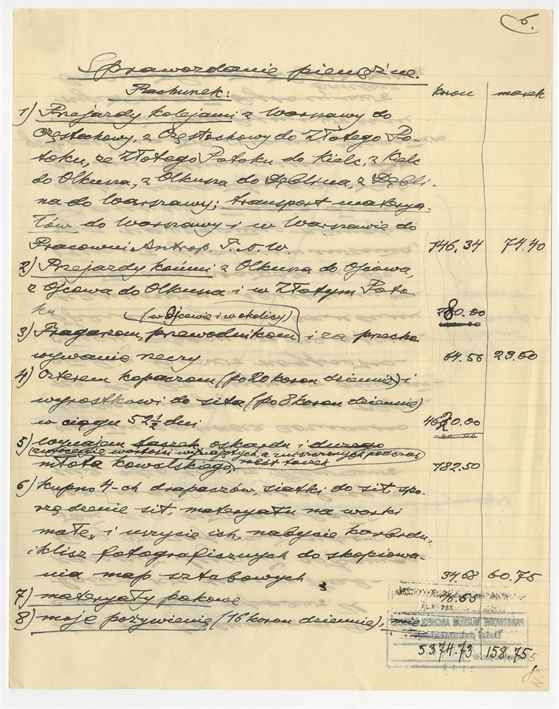 6.
Sprawozdanie pieniężne.
Rachunek: koron marek
1) Przejazdy kolejami z Warszawy do
Częstochowy, z Częstochowy do Złotego Po-
toku, ze Złotego Potoku do Kielc, z Kielc
do Olkusza, z Olkusza do Dęblina, z Dębli-
na do Warszawy; transport materya-
łów do Warszawy i w Warszawie do
Pracowni Antrop. T. N. W. 746,34 74.40
2) Przejazdy końmi z Olkusza do Ojcowa,
z Ojcowa do Olkusza i w Złotym Poto-
ku 780.00
(w Ojcowie i w okolicy)
3) Tragarzom, przewodnikom i za przecho-
wywanie rzeczy 64.56 23.60
4) Czterem kopaczom (po 20 koron dziennie) i
wyrostkowi do sita (po 8 koron dziennie)
w ciągu 52½ dni 4620.00
5) Wynajem taczek, oskarda i dużego
młota kowalskiego, 782.50
6) Kupno 4-ch drapaczów, siatki do sit, spo-
rządzenie sit, materyału na worki
małe, i uszycie ich, nabycie
klisz fotograficznych do skopiowa-
nia map sztabowych 34.68 60,75
7) materyały pakowe
8) moje pożywienie (16 koron dziennie),
5374.73 158.75